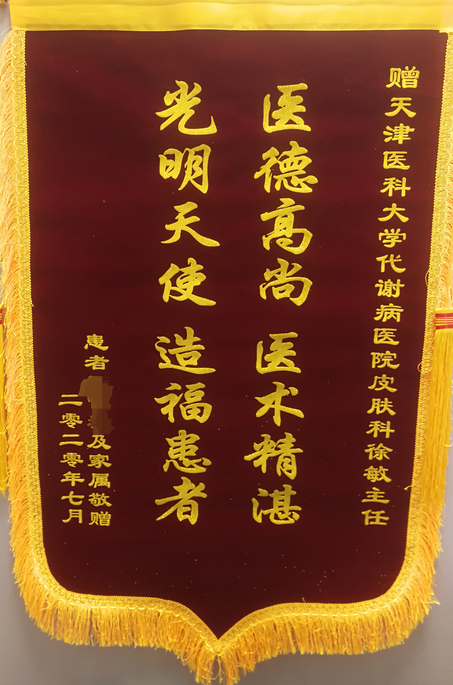 赠天津医科大学代谢病医院皮肤科徐敏主任
医德高尚 医术精湛
光明天使 造福患者
患者
及家属敬赠
二零二零年七月